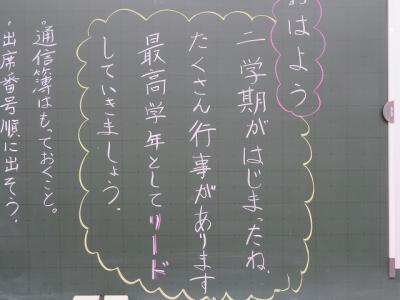 おはよう
二学期がはじまったね。
たくさん行事があります。
最高学年としてリード
していきましょう。
・通信簿はもっておくこと。
・出席番号順に出そう。